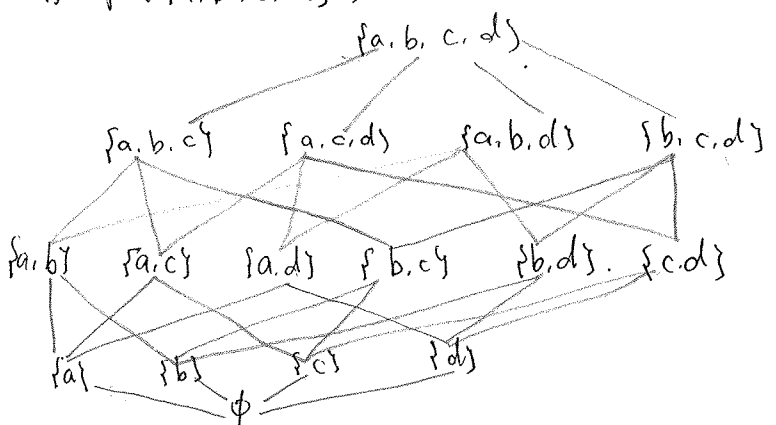 {a, b, c, d}
{a, b, c} {a, c, d} {a, b, d} {b, c, d}
{a, b} {a, c} {a, d} {b, c} {b, d} {c, d}
{a} {b} {c} {d}
ϕ